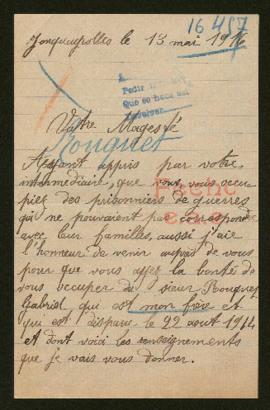 16487
Jonquerolles le 13 mai 1916
Pedir
Que se haga
Votre Magesté
Rouquet
Ayant appris par votre
intermédiaire, que vous vous occu-
piez des prisonniers de guerres
qui ne pouvaient pas correspondre
avec leur familles, aussi j'aie
l'honneur de venir auprès de vous
pour que vous ayez la bonté de
vous occuper du sieur Rouquet
Gabriel qui est mon frère et
qui est disparu le 22 aout 1914
et dont voici les renseignements
que je vais vous donner.